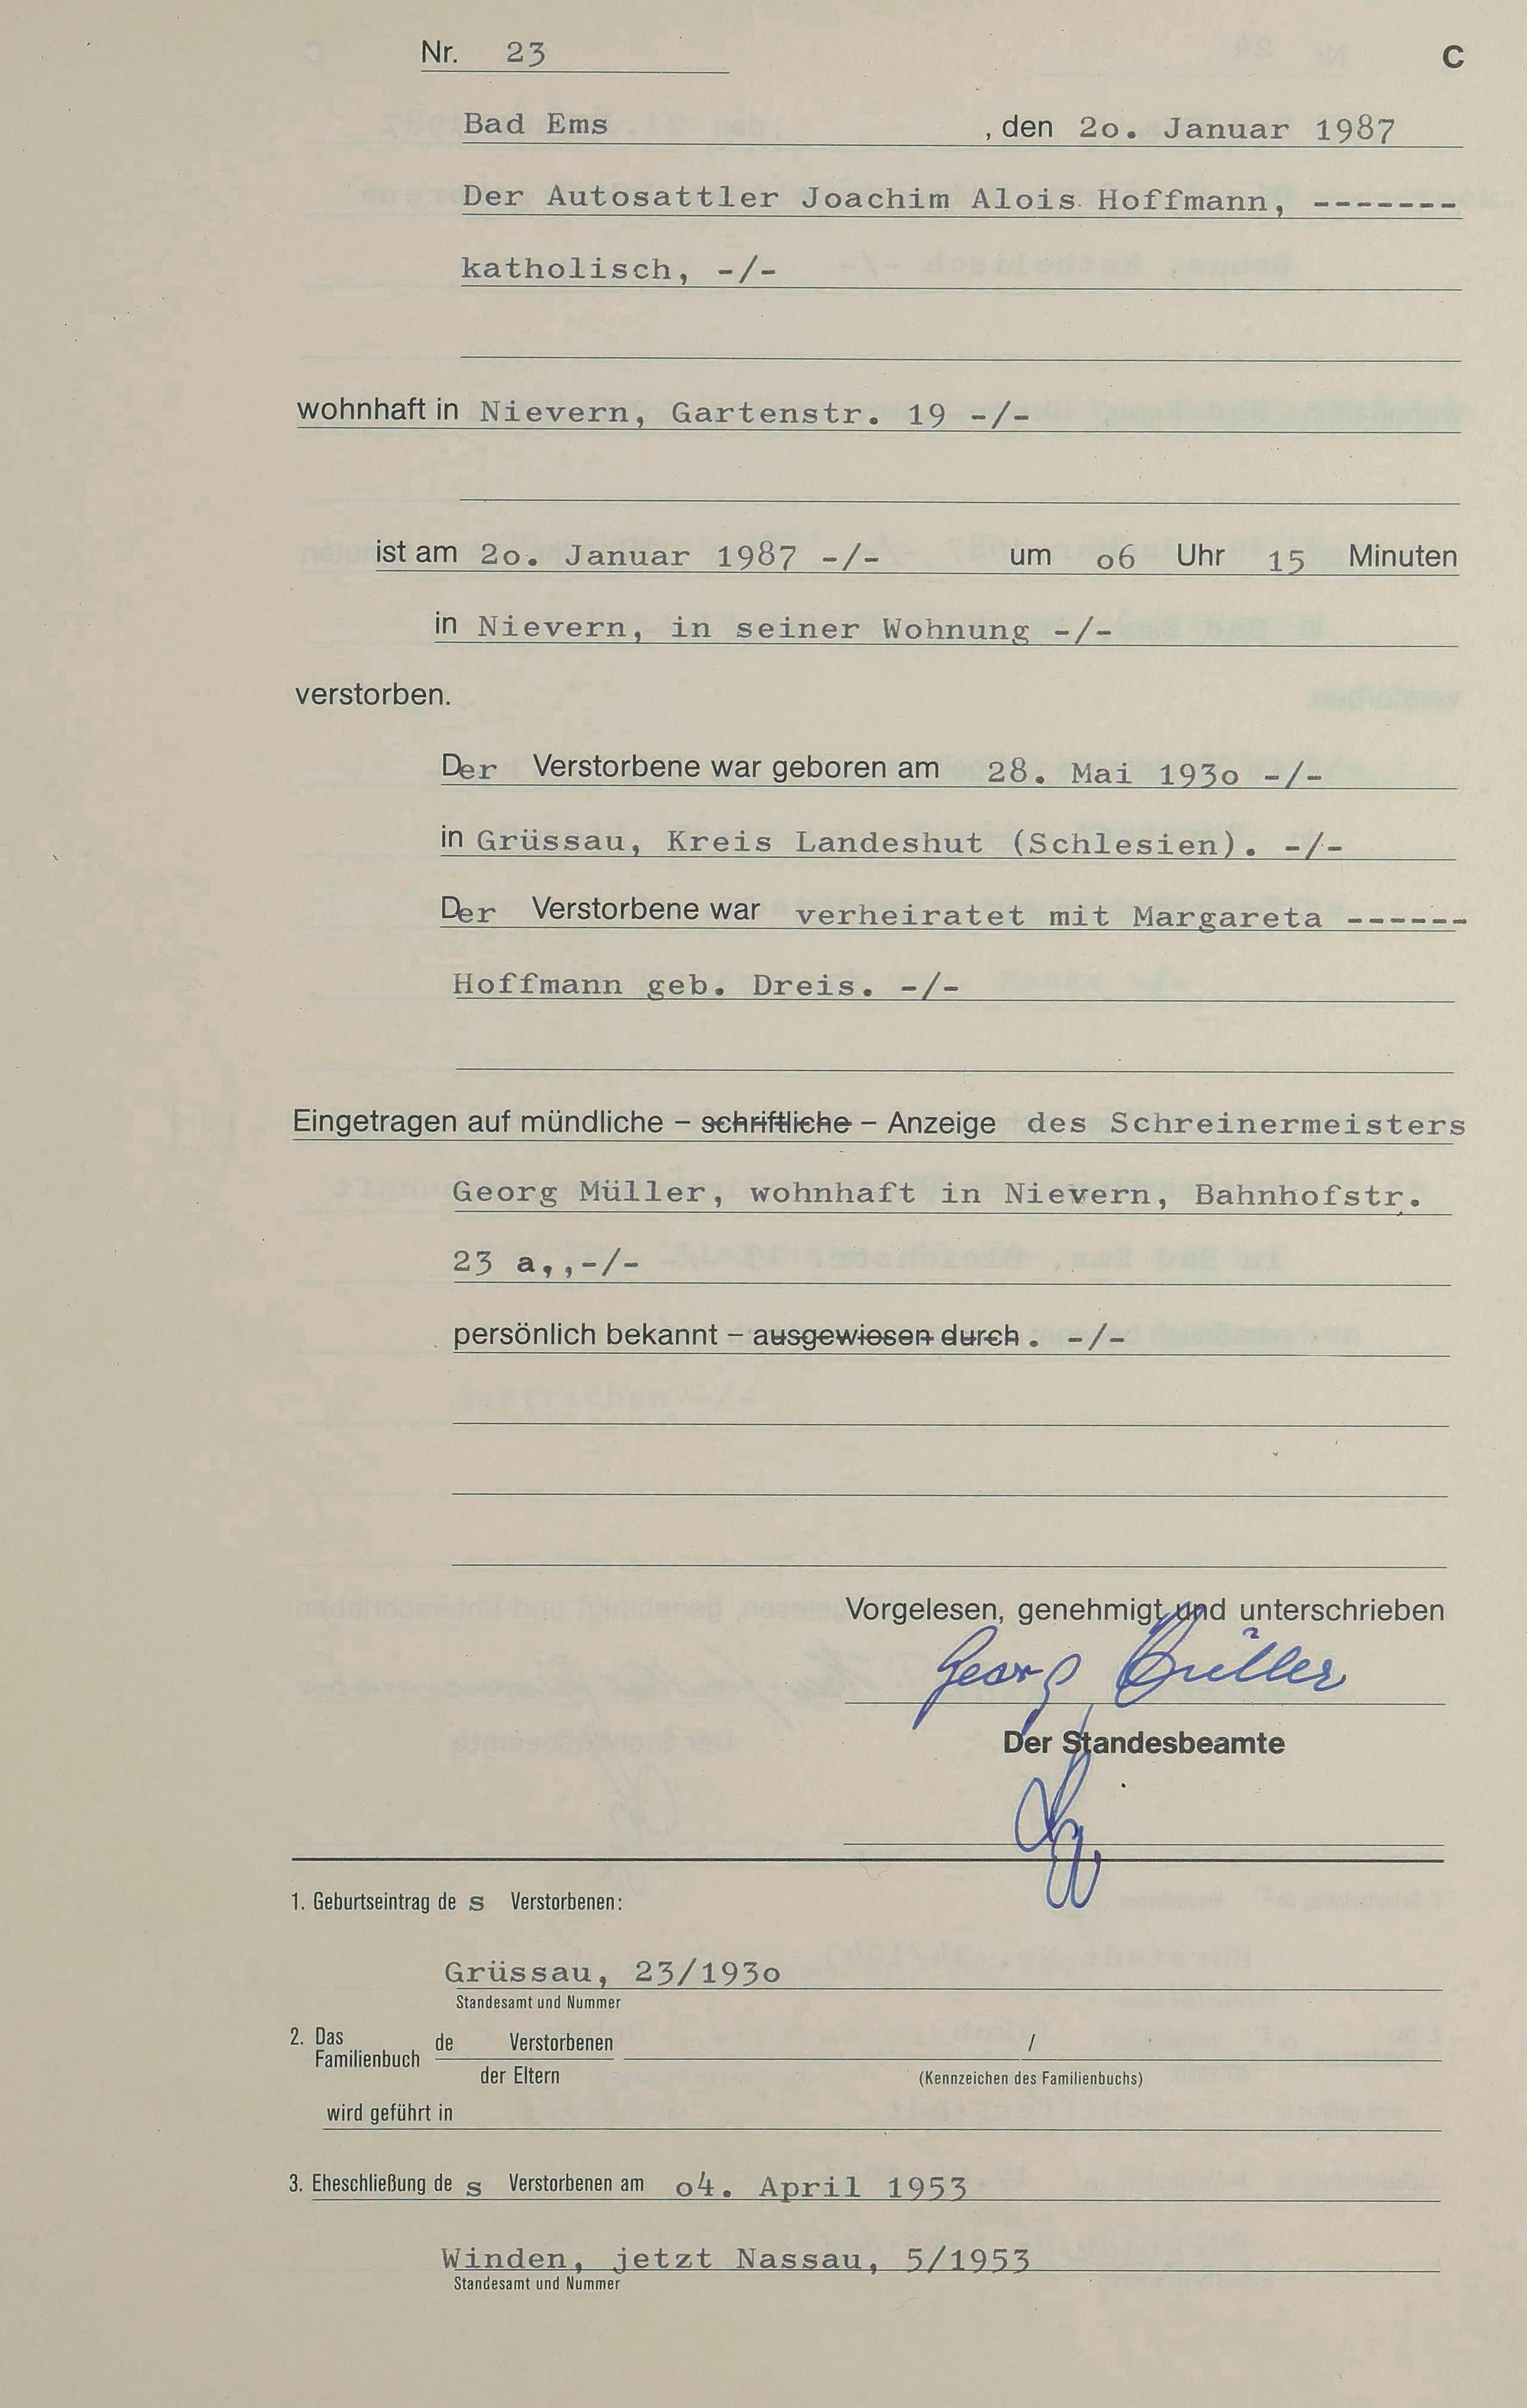 Nr. 23
C
Bad Ems , den 2o. Januar 1987
Der Autosattler Joachim Alois Hoffmann, -------
katholisch, -/-
wohnhaft in Nievern, Gartenstr. 19 -/-
ist am 2o. Januar 1987 -/- um o6 Uhr 15 Minuten
in Nievern, in seiner Wohnung -/-
verstorben.
Der Verstorbene war geboren am 28. Mai 193o -/-
in Grüssau, Kreis Landeshut (Schlesien). -/-
Der Verstorbene war verheiratet mit Margareta ------
Hoffmann geb. Dreis. -/-
Eingetragen auf mündliche – schriftliche – Anzeige des Schreinermeisters
Georg Müller, wohnhaft in Nievern, Bahnhofstr.
23 a,,-/-
persönlich bekannt – ausgewiesen durch . -/-
Vorgelesen, genehmigt und unterschrieben
Georg Müller
Der Standesbeamte
1. Geburtseintrag de s Verstorbenen:
Grüssau, 23/193o
Standesamt und Nummer
2. Das Familienbuch de Verstorbenen /
der Eltern (Kennzeichen des Familienbuchs)
wird geführt in
3. Eheschließung de s Verstorbenen am o4. April 1953
Winden, jetzt Nassau, 5/1953
Standesamt und Nummer